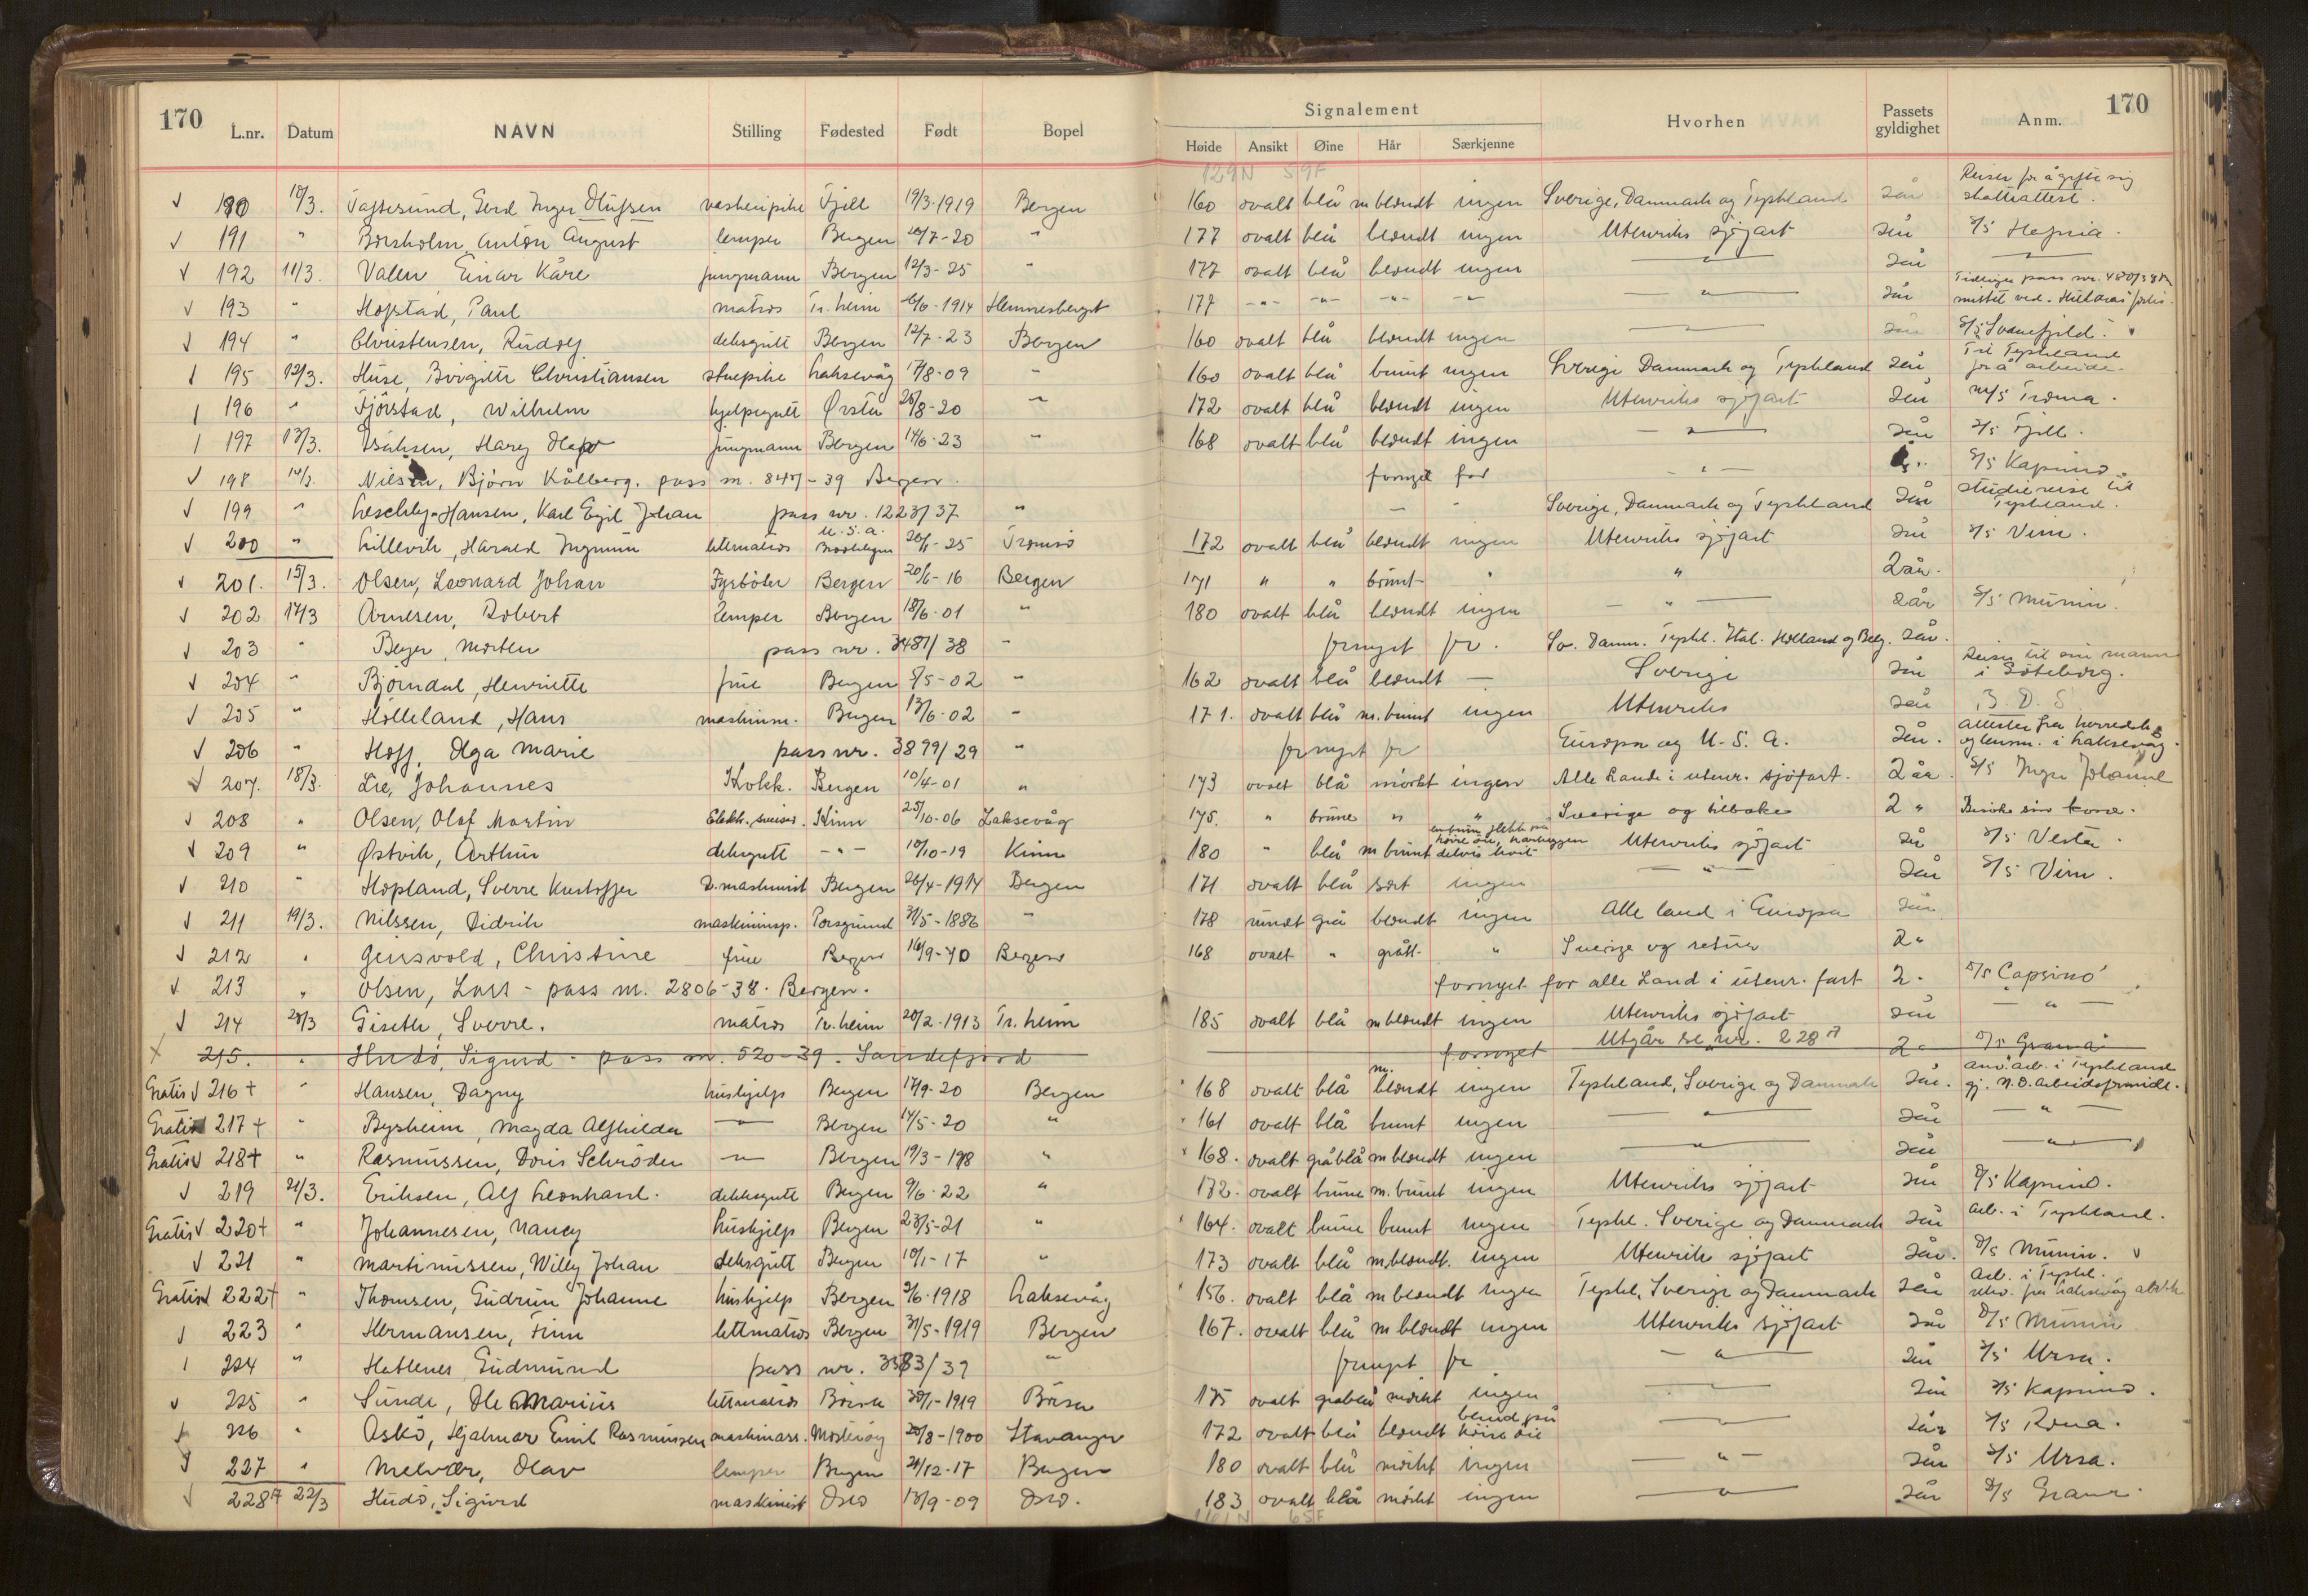 170
L.nr. Datum NAVN Stilling Fødested Født Bopel
Signalement
Høide Ansikt Øine Hår Særkjenne
Hvorhen
Passets gyldighet
Anm.
170
129N 59F
190 Gerd Inger Olufsen Fjell 19/3-1919 Bergen 160 ovalt blå m blondt ingen Sverige, Danmark og Tyskland 2 år Reiser for å gifte sig
191 " Borsholm Anton August lemper Bergen 7-20 " 177 ovalt blå blondt ingen Utenriks sjøfart 2 år
192 11/3. Valen Einar Kåre jungmann Bergen 12/3-25 " 177 ovalt blå blondt ingen — " — 2 år
193 " Hofstad, Paul matros Tr. heim 6-1914 Hemnesberget 177 -"- -"- -"- -"- — " — 2 år
194 " Christensen, Rudolf dekksgutt Bergen 12/7-23 Bergen 160 ovalt blå blondt ingen — 2 år
195 12/3. Huse, Borgitte Christiansen stuepike Laksevåg 8-09 " 160 ovalt blå brunt ingen Sverige Danmark og Tyskland 2 år Til Tyskland for å arbeide.
196 " Fjörstad, Wilhelm Ørsta 8-20 " 172 ovalt blå blondt ingen Utenriks sjøfart 2 år m/s Troma.
197 13/3. Isaksen, Harry Olaf jungmann Bergen 14/6-23 " 168 ovalt blå blondt ingen — " — 2 år s/s Fjell.
198 14/3. Nilsen, Bjørn Kålberg. pass nr. 39 Bergen. fornyet for — " — S/s Kapsino.
199 " Hansen, Karl Egil Johan pass nr. 1223/37 " Sverige, Danmark og Tyskland 2 år studiereise til Tyskland.
200 " Lillevik, Harald Ingmun lettmatros Brooklyn U.S.A. 25 Tromsø 172 ovalt blå blondt ingen Utenriks sjøfart 2 år s/s Vim.
201. 15/3. Olsen, Leonard Johan Fyrbøter Bergen 20/6-16 Bergen 171 " " brunt " " 2 år.
202 17/3 Arnesen, Robert Lemper Bergen 18/6-01 " 180 ovalt blå blondt ingen — " — 2 år S/S Munin.
203 " Beyer, Morten pass nr. 3487/38 " fornyet for. Sv. Danm. Tyskl. Ital. Holland og Belg. 2 år.
204 " Bjørndal, Henriette frue Bergen 5-02 " 162 ovalt blå blondt — Sverige 2 år Reiser til sin mann i Göteborg.
205 " Hölleland, Hans maskinm. Bergen 13/6-02 " 171. ovalt blå m. brunt ingen Utenriks 2 år B. D. S.
206 " Hoff, Olga Marie pass nr. 3899/29 " fornyet for Europa og U.S.A. 2 år.
207. 18/3. Lie, Johannes Kokk. Bergen 10/4-01 " 173 ovalt blå mørkt ingen Alle Lande i utenr. sjøfart. 2 år. S/S Inger Johanne
208 " Olsen, Olaf Martin Kinn 25/10-06 Laksevåg 175. " brune " " Sverige og tilbake 2 " Besøke sin kone.
209 " Østvik, Arthur dekksgutt -"- 10/10-19 Kinn 180 " blå m brunt Utenriks sjøfart 2 år s/s Vesta
210 " Hopland, Sverre Kristoffer 2. maskinist Bergen 26/4-1914 Bergen 171 ovalt blå sort ingen — " — 2 år S/S Vim.
211 19/3. Nilssen, Didrik maskininsp. Porsgrund 5-1886 " 178 rundt grå blondt ingen Alle land i Europa 2 år
212 " Geisvold, Christine frue Bergen 9-70 Bergen 168 ovalt " grått " Sverige og retur 2 "
213 " Olsen, Lars - pass nr. 2806-38. Bergen. fornyet for alle Land i utenr. fart 2 " D/S Capsino
214 20/3 Giseth, Sverre. matros Tr. heim 20/2-1913 Tr. heim 185 ovalt blå m blondt ingen Utenriks sjøfart 2 år — " —
215. " Hudö, Sigurd - pass nr. 520-39. Sandefjord fornyet Utgår se nr. 228 2 " D/S Grana
Gratis 216 + " Hansen, Dagny hushjelp Bergen 17/9-20 Bergen 168 ovalt blå m. blondt ingen Tyskland, Sverige og Danmark 2 år. gj. N.O. Arbeidsformidl.
Gratis 217 + " Bysheim, Magda Alfhilda — Bergen 14/5-20 " 161 ovalt blå brunt ingen — " — 2 år — " —
Gratis 218 + " Rasmussen, Doris Schröder — Bergen 19/3-1918 " 168. ovalt gråblå m blondt ingen — " — 2 år — " —
219 21/3. Eriksen, Alf Leonhard. dekksgutt Bergen 9/6-22 " 172. ovalt brune m. brunt ingen Utenriks sjøfart 2 år D/S Kapsino.
Gratis 220 + " Johannesen, Nancy hushjelp Bergen 23/5-21 " 164. ovalt brune brunt ingen Tyskl. Sverige og Danmark 2 år arb. i Tyskland.
221 " Martinussen, Willy Johan dekksgutt Bergen 10/1-17 " 173 ovalt blå m. blondt. ingen Utenriks sjøfart 2 år. D/S Munin.
Gratis 222 + " Thomsen, Gudrun Johanne hushjelp Bergen 6-1918 Laksevåg 156. ovalt blå m blondt ingen Tyskl, Sverige og Danmark 2 år Arb. i Tyskl.
223 " Hermansen, Finn lettmatros Bergen 31/5-1919 Bergen 167. ovalt blå m blondt ingen Utenriks sjøfart 2 år D/S Munin
224 " Hatlenes Gudmund pass nr. " fornyet for — " — 2 år s/s Ursa.
225 " Sunde, Ole Marius lettmatros Börsa 1-1919 Börsa 175 ovalt gråblå mørkt ingen — " — 2 år s/s Kapsino.
226 " Askö, Hjalmar Emil Rasmussen maskinass. 8-1900 Stavanger 172 ovalt blå blondt blind på höire öie — " — 2 år s/s Rona.
227 " Melvær, Olav lemper Bergen 21/12-17 Bergen 180 ovalt blå mørkt ingen — " — 2 år s/s Ursa.
228 22/3 Hudö, Sigurd maskinist Oslo 13/9-09 Oslo. 183 ovalt blå mørkt ingen — " — 2 år D/S Grana.
65F